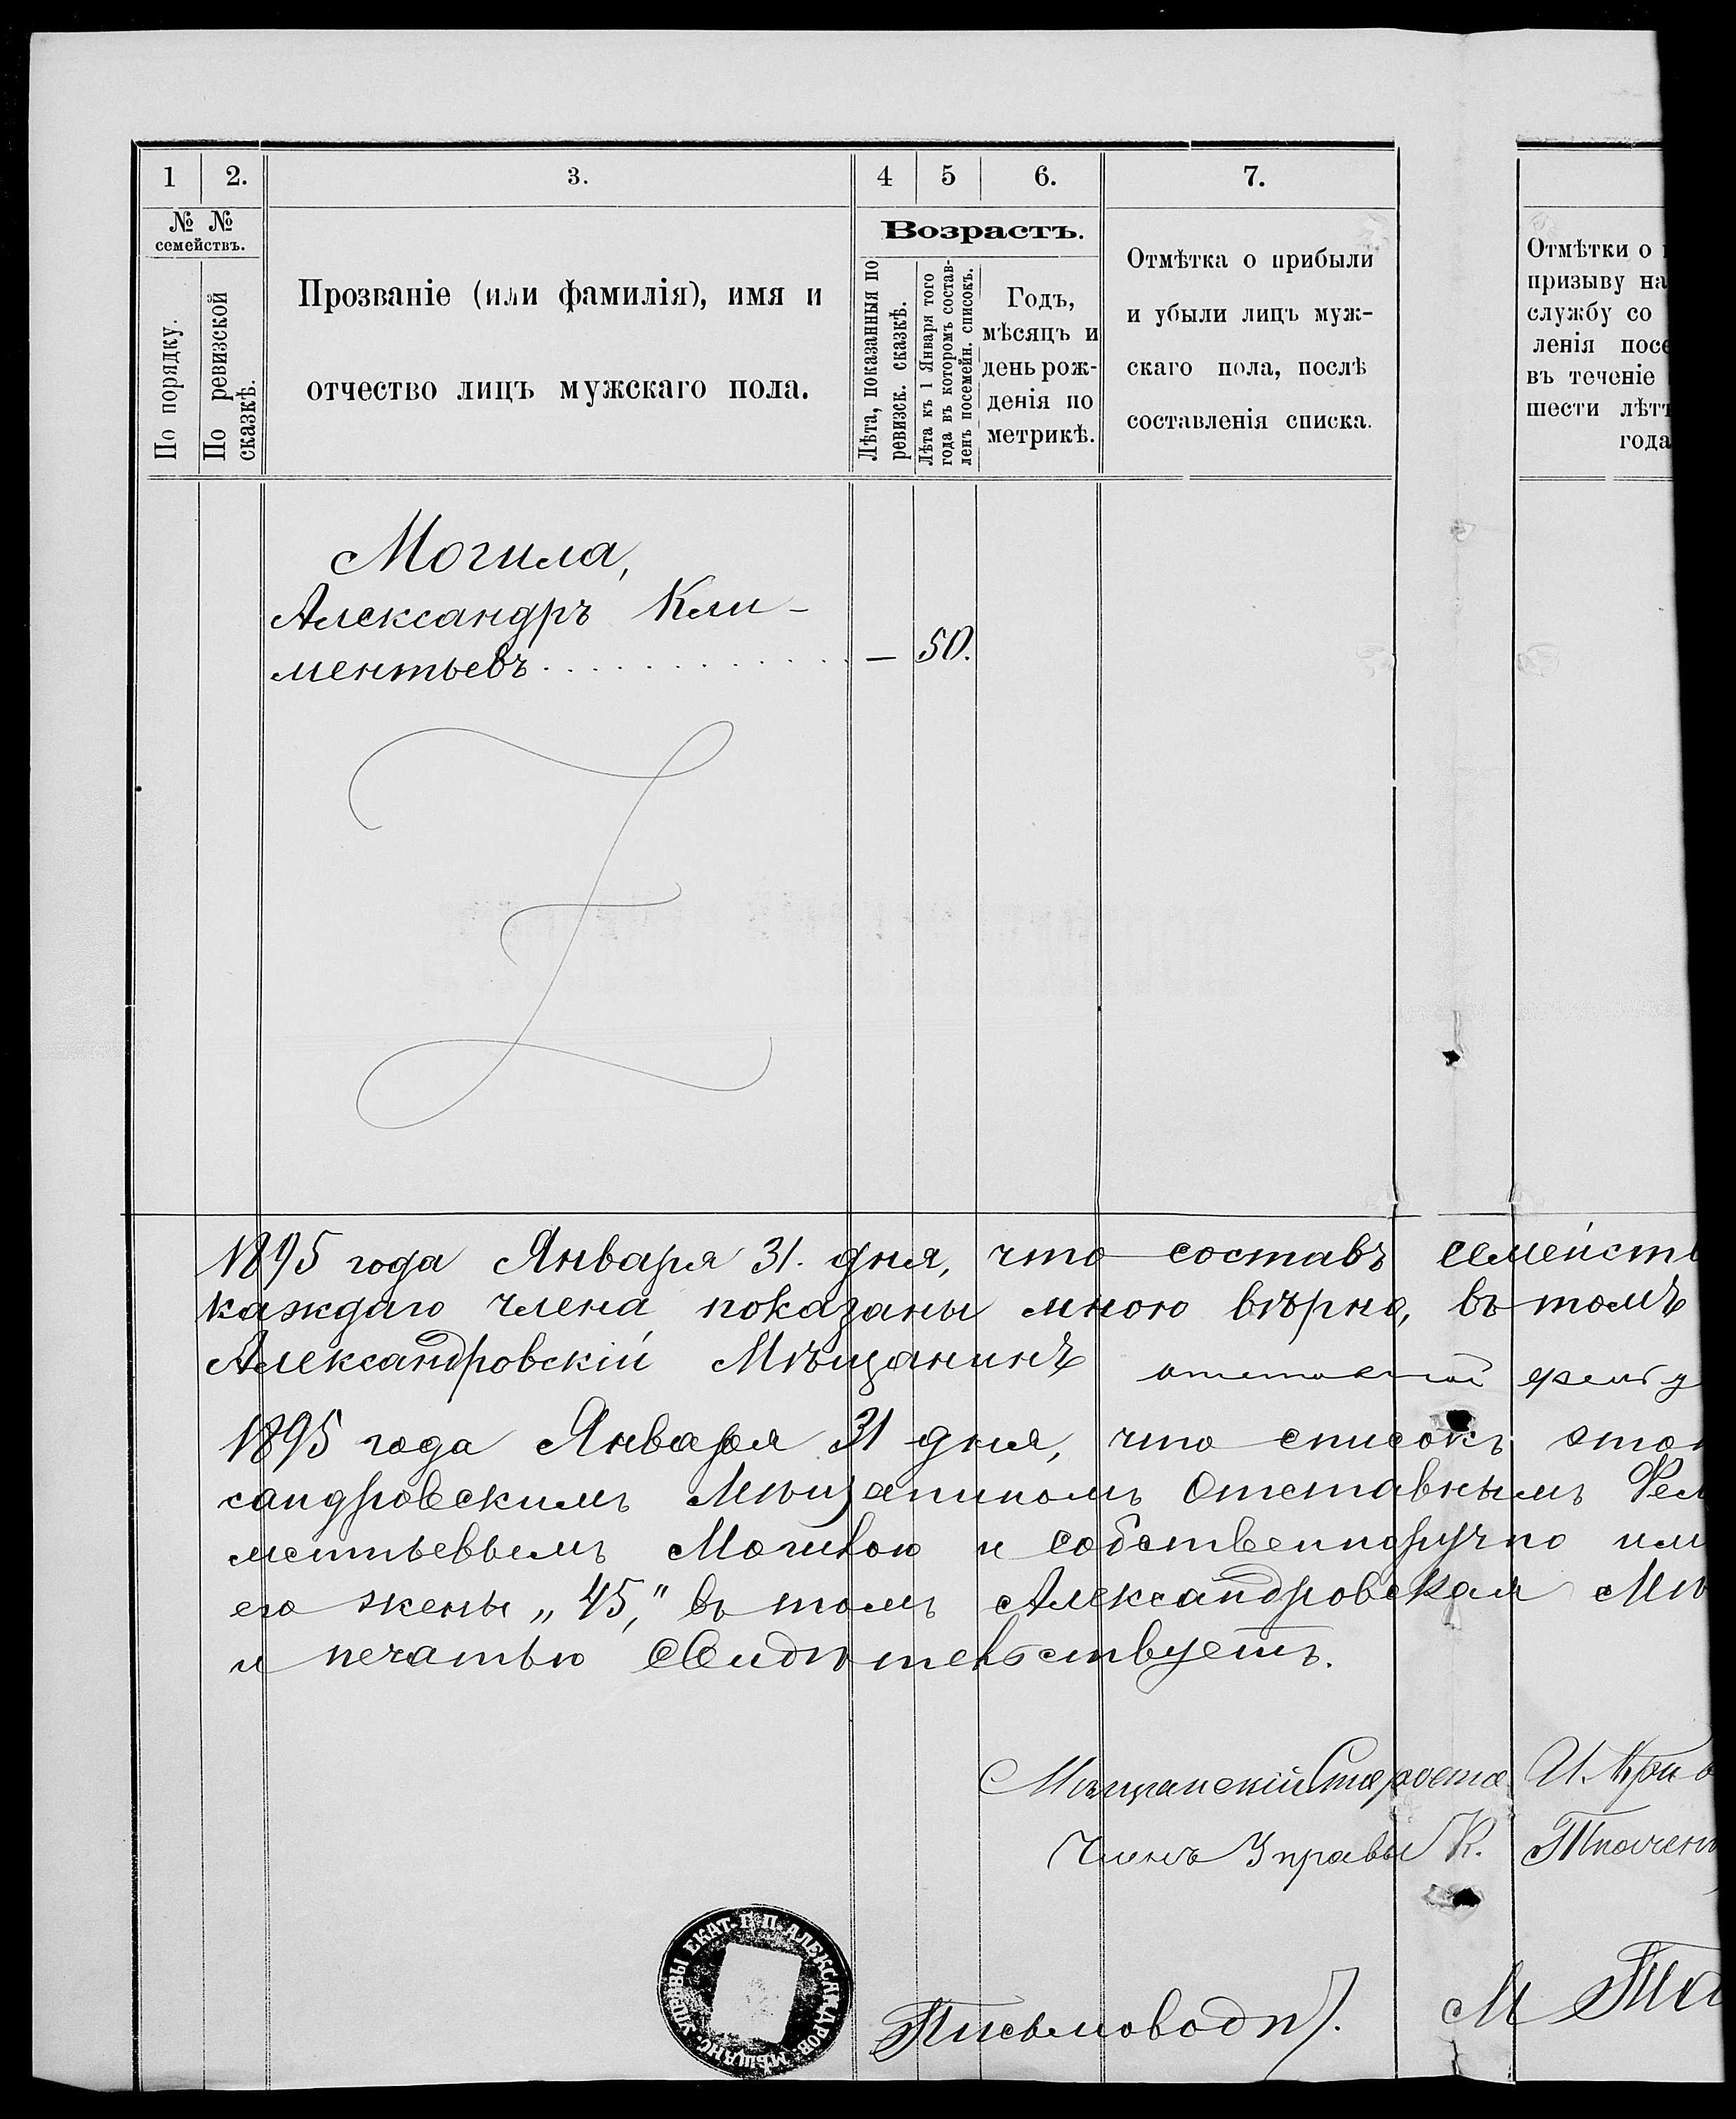 1 2. 3. 4 5 6. 7.
№ №
семействъ.
По порядку.
По ревизской
сказкѣ.
Прозваніе (или фамилія), имя и
отчество лицъ мужскаго пола.
Возрастъ.
Лѣта, показанныя по
ревизск. сказкѣ.
Лѣта къ 1 Января того
года въ которомъ состав-
ленъ посемейн. списокъ.
Годъ,
мѣсяцъ и
день рож-
денія по
метрикѣ.
Отмѣтка о прибыли
и убыли лицъ муж-
скаго пола, послѣ
составленія списка.
Отмѣтки о
призыву на
службу со
ленія посе
въ теченіе
шести лѣтъ
года
Могила,
Александръ Кли-
ментьевъ . . . . . . . . . . . . — 50.
1895 года Января 31. дня, что составъ семейств
каждаго члена показаны мною вѣрно, въ томъ
Александровскій Мѣщанинъ отставной фельд
1895 года Января 31 дня, что списокъ этот
сандровскимъ Мѣщаниномъ Отставнымъ Фел
ментьевымъ Могилою и собственноручно им
его жены „45,“ въ томъ Александровская Мѣ
и печатью свидѣтельствуетъ.
Мѣщанскій Староста И. Крив
Членъ Управы К. Ткачен
Письмоводи. М Тка
УПРАВЫ ЕКАТ. Г. П. АЛЕКСАНДРОВ. МѢЩАНС.